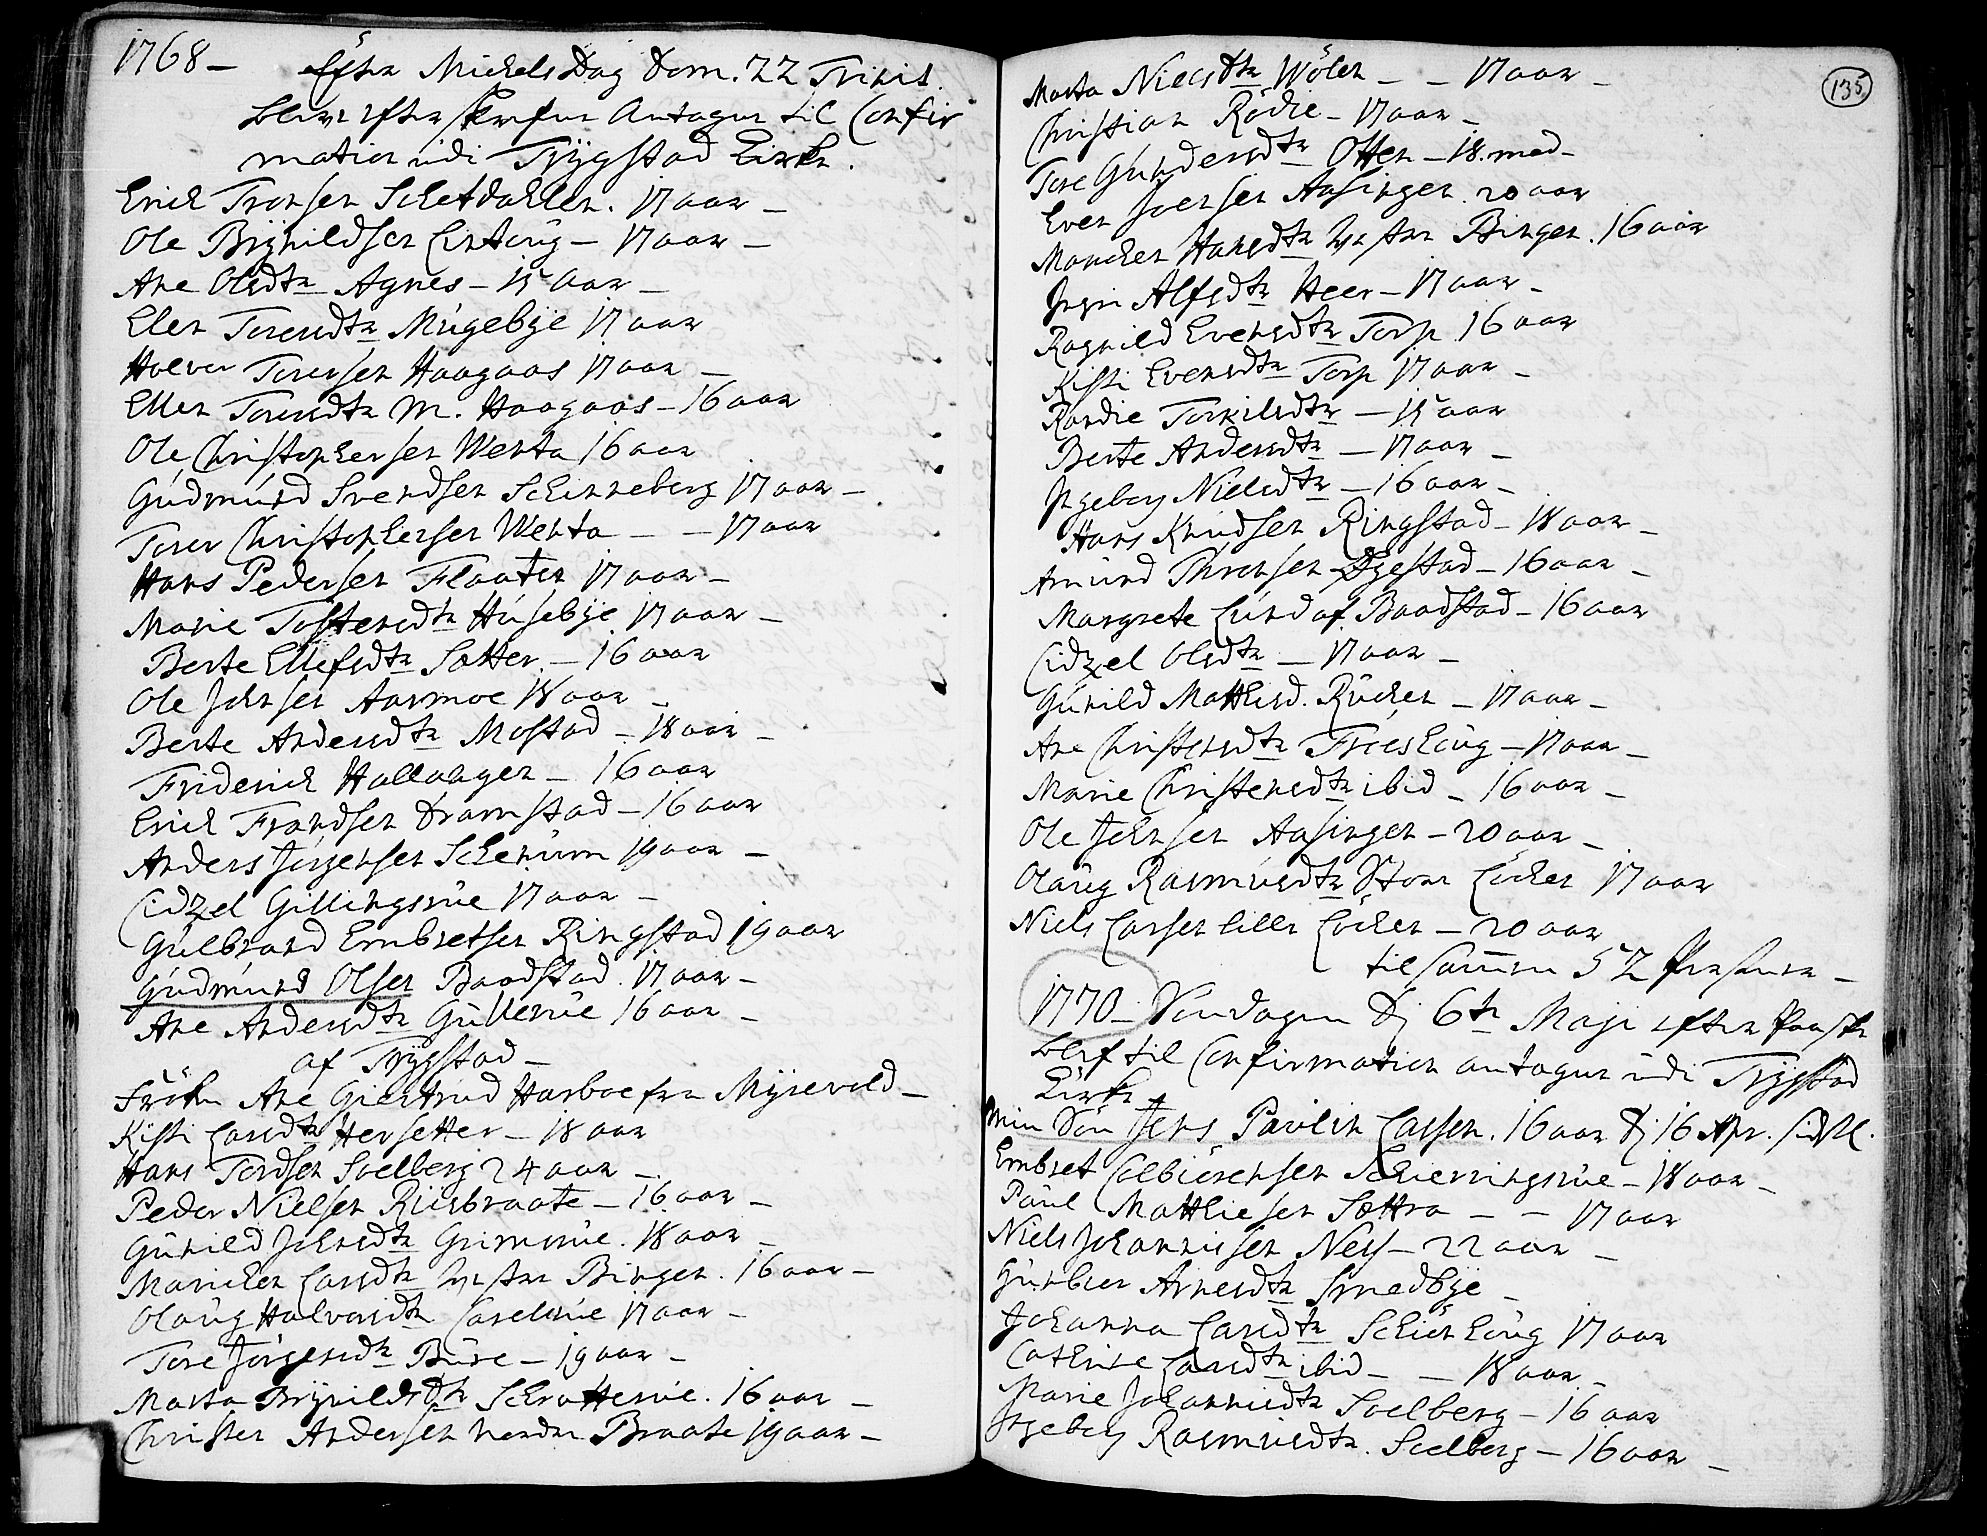 1768 - Efter Michels Dag Dom. 22 Trinit.
bleve efter skrefne Antagne til Confir
mation udi Trygstad Kirke.
Erick Tronsen Schetdahlen. 17 aar -
Ole Brynildsen Lintoug - 17 aar -
Ane Olsdtr Agnes - 15 Aar -
Elen Toresdtr Mugebye 17 aar
Halvor Toresen Haagaas 17 aar -
Ellen Toresdtr M. Haagaas - 16 aar
Ole Christophersen Wenta 16 aar
Gudmund Svendsen Schinneberg 17 aar -
Torer Christophersen Wenta - - 17 aar
Hans Pedersen Flaaten 17 aar -
Marie Tostensdtr Husebye 17 aar -
Berte Ellefsdtr Sætter - 16 aar
Ole Johnsen Aarmoe 18 aar -
Berte Andersdtr Mostad - 18 aar -
Friderich Hallangen - 16 aar
Erick Frandsen Dramstad - 16 aar
Anders Jörgensen Schenum 19 aar -
Cidzel Gillingsrue 17 aar -
Gulbrand Embretsen Ringstad 19 aar
Gudmund Olsen Baadstad. 17 aar -
Ane Andersdtr Gullerue 16 aar -
af Trygstad -
Frökn Ane Giertrud Harboe fra Mysevold -
Kisti Larsdtr Hersetter - 18 aar
Hans Tordsen Soelberg 24 aar -
Peder Nielsen Riisbraate - 16 aar -
Gunild Johnsdtr Grimsrue. 18 aar -
Maricken Larsdtr Vestre Bingen. 16 aar -
Olaug Halvorsdtr Carelsrue 17 aar -
Tore Jörgensdtr Bure - 19 aar -
Marta Brynildsdtr Schratterue. 16 aar -
Christen Andersen nordre Braate 19 aar -
135
Marta Nielsdtr Wölen - - 17 aar -
Christian Rödie - 17 aar -
Tore Gundersdtr Otten - 18. med -
Even Joensen Aasingen. 20 aar
Maricken Hansdtr Vestre Bingen. 16 aar
Ingri Alfsdtr Heer - 17 aar -
Ragnild Evensdtr Torp 16 aar
Kisti Evensdtr Torp 17 aar -
Randie Torkilsdtr - 15 aar
Berte Andersdtr - 17 aar -
Ingeborg Nielsdtr - 16 aar -
Hans Knudsen Ringstad - 18 aar -
Amund Thronsen Degstad - 16 aar -
Margrete Lund af Baadstad - 16 aar
Cidzel Olsdtr - 17 aar -
Gunild Matthisd. Rucken - 17 aar -
Ane Christensdtr Fröeshoug - 17 aar -
Marie Christensdtr ibid - 16 aar -
Ole Johnsen Aasingen - 20 aar -
Olaug Rasmusdtr Store Löcken 17 aar
Niels Larsen lille Löcken - 20 aar
tilsamen 52 Personer -
1770 - Söndagen d. 6te Maji efter Paaske
blef til Confirmation antagne udi Trygstad
Kirke
Min Sön Jens Paulin Lassen. 16 aar d. 16 Apr. sidstl.
Embret Colbiörnsen Schierningsrue - 18 aar -
Paul Matthiesen Sættra - - 17 aar
Niels Johannisen Nes - 22 aar -
Gunbiör Arnesdtr Smedbye -
Johanna Larsdtr Schiönhoug 17 aar
Cathrine Larsdtr ibid - - 18 aar -
Marie Johannisdtr Soelberg - 16 aar
Ingeborg Rasmusdtr. Soelberg - 16 aar -